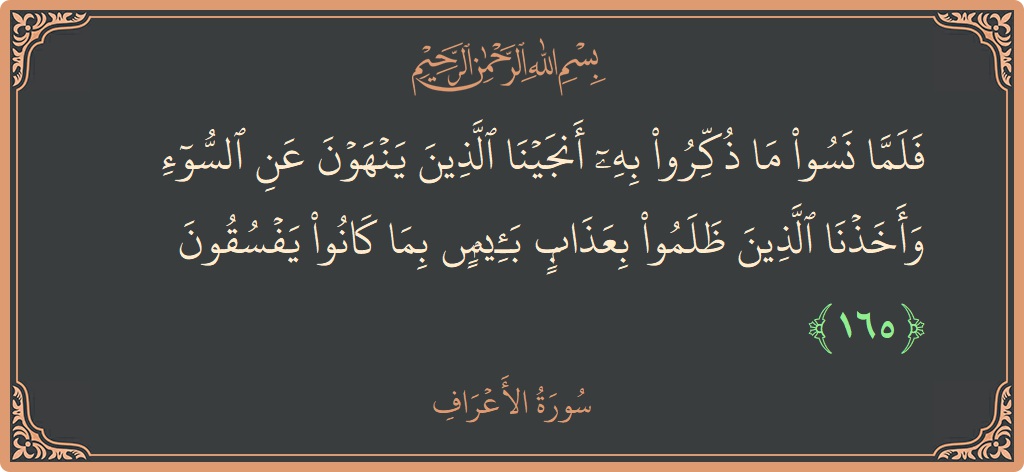 بِسْمِ اللَّهِ الرَّحْمَٰنِ الرَّحِيمِ
فَلَمَّا نَسُوا۟ مَا ذُكِّرُوا۟ بِهِۦٓ أَنجَيْنَا ٱلَّذِينَ يَنْهَوْنَ عَنِ ٱلسُّوٓءِ
وَأَخَذْنَا ٱلَّذِينَ ظَلَمُوا۟ بِعَذَابٍۭ بَـِٔيسٍۭ بِمَا كَانُوا۟ يَفْسُقُونَ
﴿١٦٥﴾
سُورَةُ الأَعْرَافِ